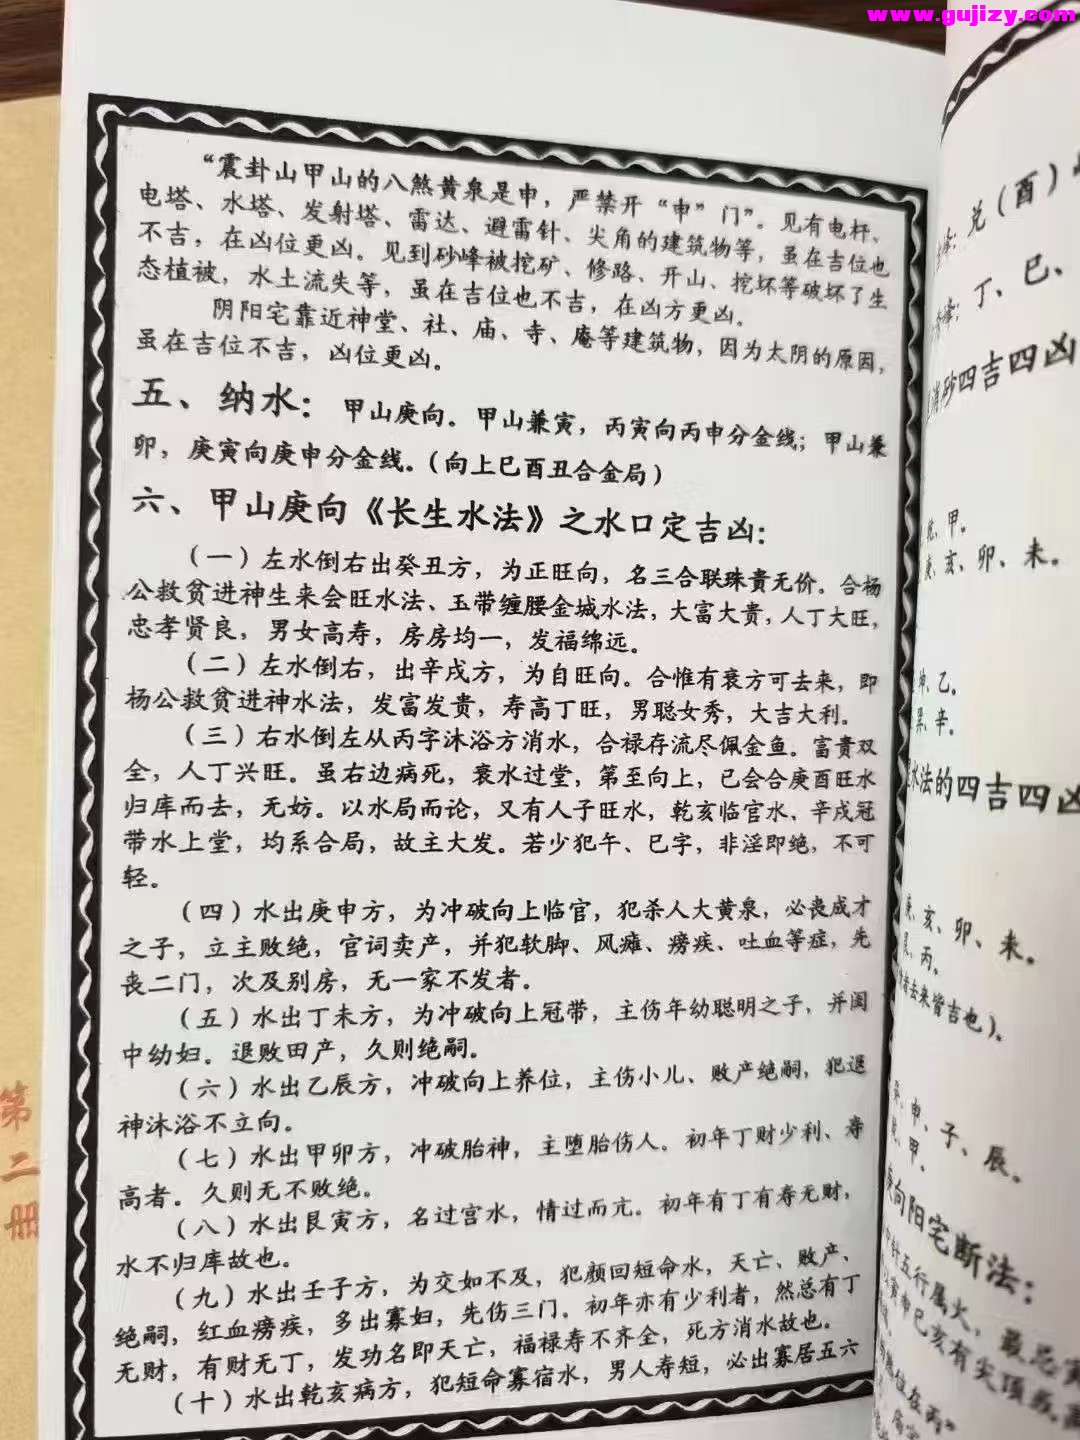 www.gujizy.com
“震卦山甲山的八煞黄泉是申，严禁开“申”门”。见有电杆、
电塔、水塔、发射塔、雷达、避雷针、尖角的建筑物等，虽在吉位也
不吉，在凶位更凶。见到砂峰被挖矿、修路、开山、挖坏等破坏了生
态植被，水土流失等，虽在吉位也不吉，在凶方更凶。
阴阳宅靠近神堂、社、庙、寺、庵等建筑物，因为太阴的原因，
虽在吉位不吉，凶位更凶。
五、纳水：甲山庚向。甲山兼寅，丙寅向丙申分金线；甲山兼
卯，庚寅向庚申分金线。（向上巳酉丑合金局）
六、甲山庚向《长生水法》之水口定吉凶：
（一）左水倒右出癸丑方，为正旺向，名三合联珠贵无价。合杨
公救贫进神生来会旺水法、玉带缠腰金城水法，大富大贵，人丁大旺，
忠孝贤良，男女高寿，房房均一，发福绵远。
（二）左水倒右，出辛戌方，为自旺向。合惟有衰方可去来，即
杨公救贫进神水法，发富发贵，寿高丁旺，男聪女秀，大吉大利。
（三）右水倒左从丙字沐浴方消水，合禄存流尽佩金鱼。富贵双
全，人丁兴旺。虽右边病死，衰水过堂，第至向上，已会合庚酉旺水
归库而去，无妨。以水局而论，又有人子旺水，乾亥临官水、辛戌冠
带水上堂，均系合局，故主大发。若少犯午、巳字，非淫即绝，不可
轻。
（四）水出庚申方，为冲破向上临官，犯杀人大黄泉，必丧成才
之子，立主败绝，官词卖产，并犯软脚、风瘫、痨疾、吐血等症，先
丧二门，次及别房，无一家不发者。
（五）水出丁未方，为冲破向上冠带，主伤年幼聪明之子，并闺
中幼妇。退败田产，久则绝嗣。
（六）水出乙辰方，冲破向上养位，主伤小儿、败产绝嗣，犯退
神沐浴不立向。
（七）水出甲卯方，冲破胎神，主堕胎伤人。初年丁财少利、寿
高者。久则无不败绝。
（八）水出艮寅方，名过宫水，情过而亢。初年有丁有寿无财，
水不归库故也。
（九）水出壬子方，为交如不及，犯颜回短命水，夭亡、败产、
绝嗣，红血痨疾，多出寡妇，先伤三门。初年亦有少利者，然总有丁
无财，有财无丁，发功名即夭亡，福禄寿不齐全，死方消水故也。
（十）水出乾亥病方，犯短命寡宿水，男人寿短，必出寡居五六
第二册
兑（酉）
丁、巳、
消砂四吉四凶
甲。
庚、亥、卯、未。
坤、乙。
巽、辛。
水法的四吉四凶
庚、亥、卯、未。
艮、丙。
去来皆吉也）。
申、子、辰。
甲。
庚向阳宅断法：
针五行属火，最忌寅
寅申巳亥有尖顶
煞位在丙”